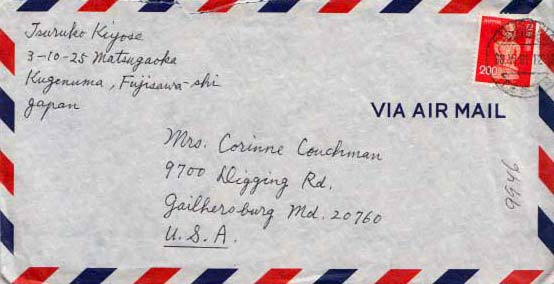 Tsuruko Kiyose
3-10-25 Matsugaoka
Kugenuma, Fujisawa-shi
Japan
NIPPON
200
VIA AIR MAIL
Mrs. Corinne Couchman
9700 Digging Rd.
Gaithersburg Md. 20760
U.S.A.
9946